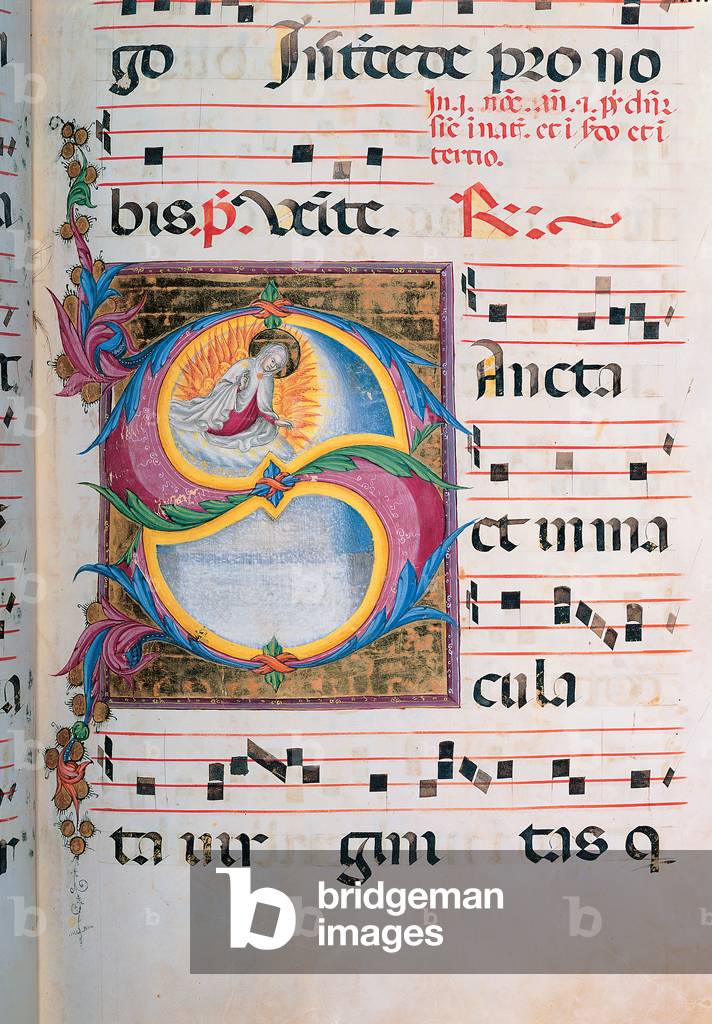 go Intercede pro no
In. j. noc̄. an̄. 2. ps̄. dn̄r
sic in nat̄. et i sc̄o et i
tertio.
bis. p̄. Venite. R:
S Ancta
et inma
cula
ta uir gini tas q
bridgeman
images